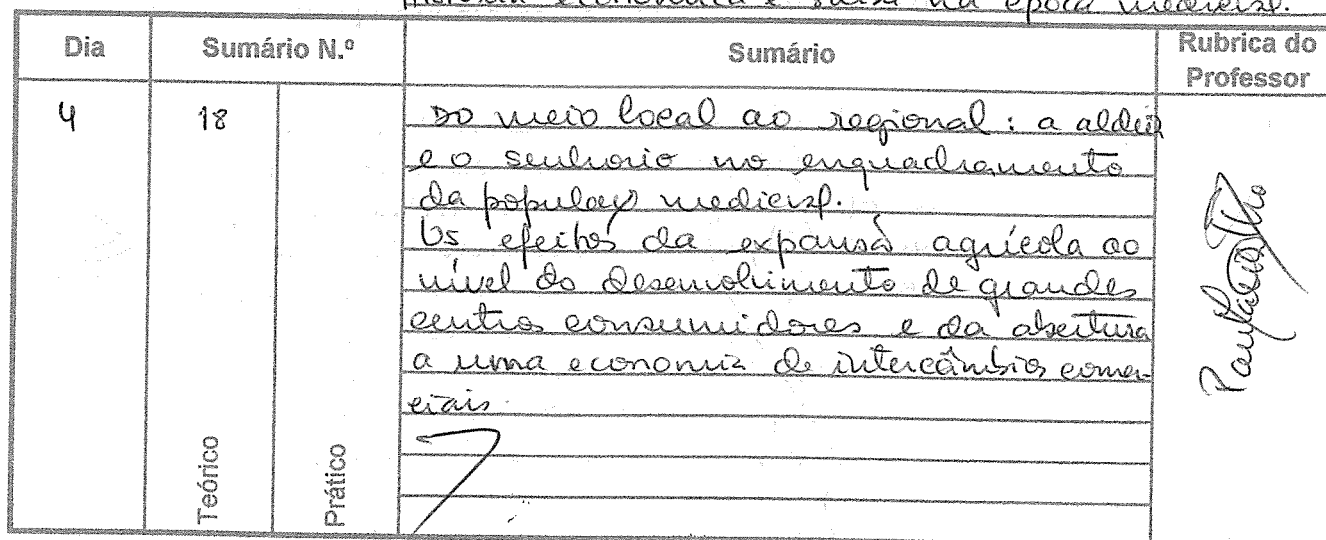 economica e na época medieval.
Dia Sumário N.º Sumário Rubrica do Professor
4 18 Do meio local ao regional: a aldeia
e o senhorio no enquadramento
da populaçã medieval.
Os efeitos da expansã agrícola ao
nível do desenvolvimento de grandes
centros consumidores e da abertura
a uma economia de intercâmbios comer-
ciais.
Teórico Prático